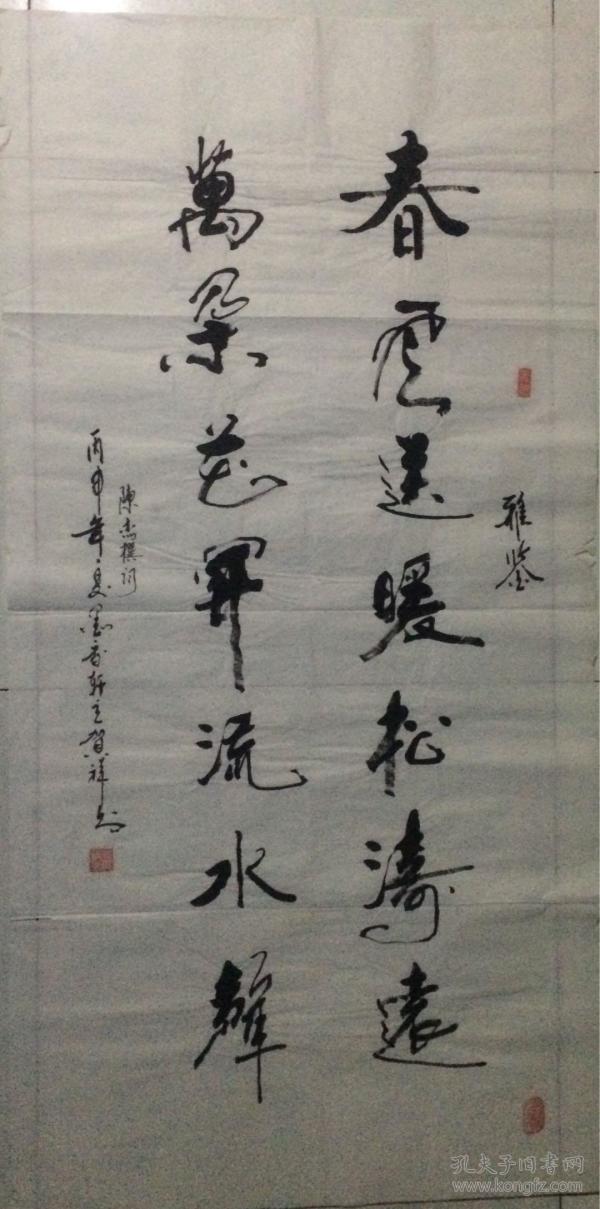 雅鉴
春風送暖松濤遠
萬朵花開流水聲
陳杰撰词
丙申年夏墨香轩主賀祥书
孔夫子旧书网
www.kongfz.com